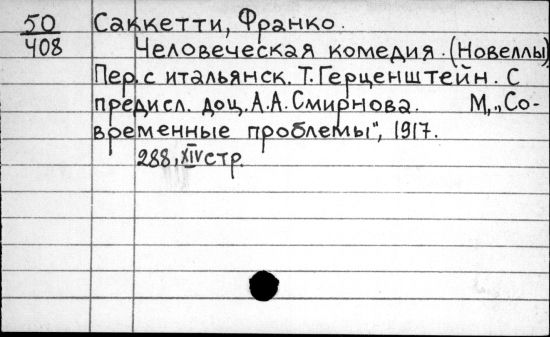 50 Саккетти, Франко.
408 Человеческая комедия. (Новеллы)
Пер. с итальянск. Т. Герценштейн. С
предисл. доц. А.А. Смирнова. М., „Со-
временные проблемы", 1917.
288, XIV стр.